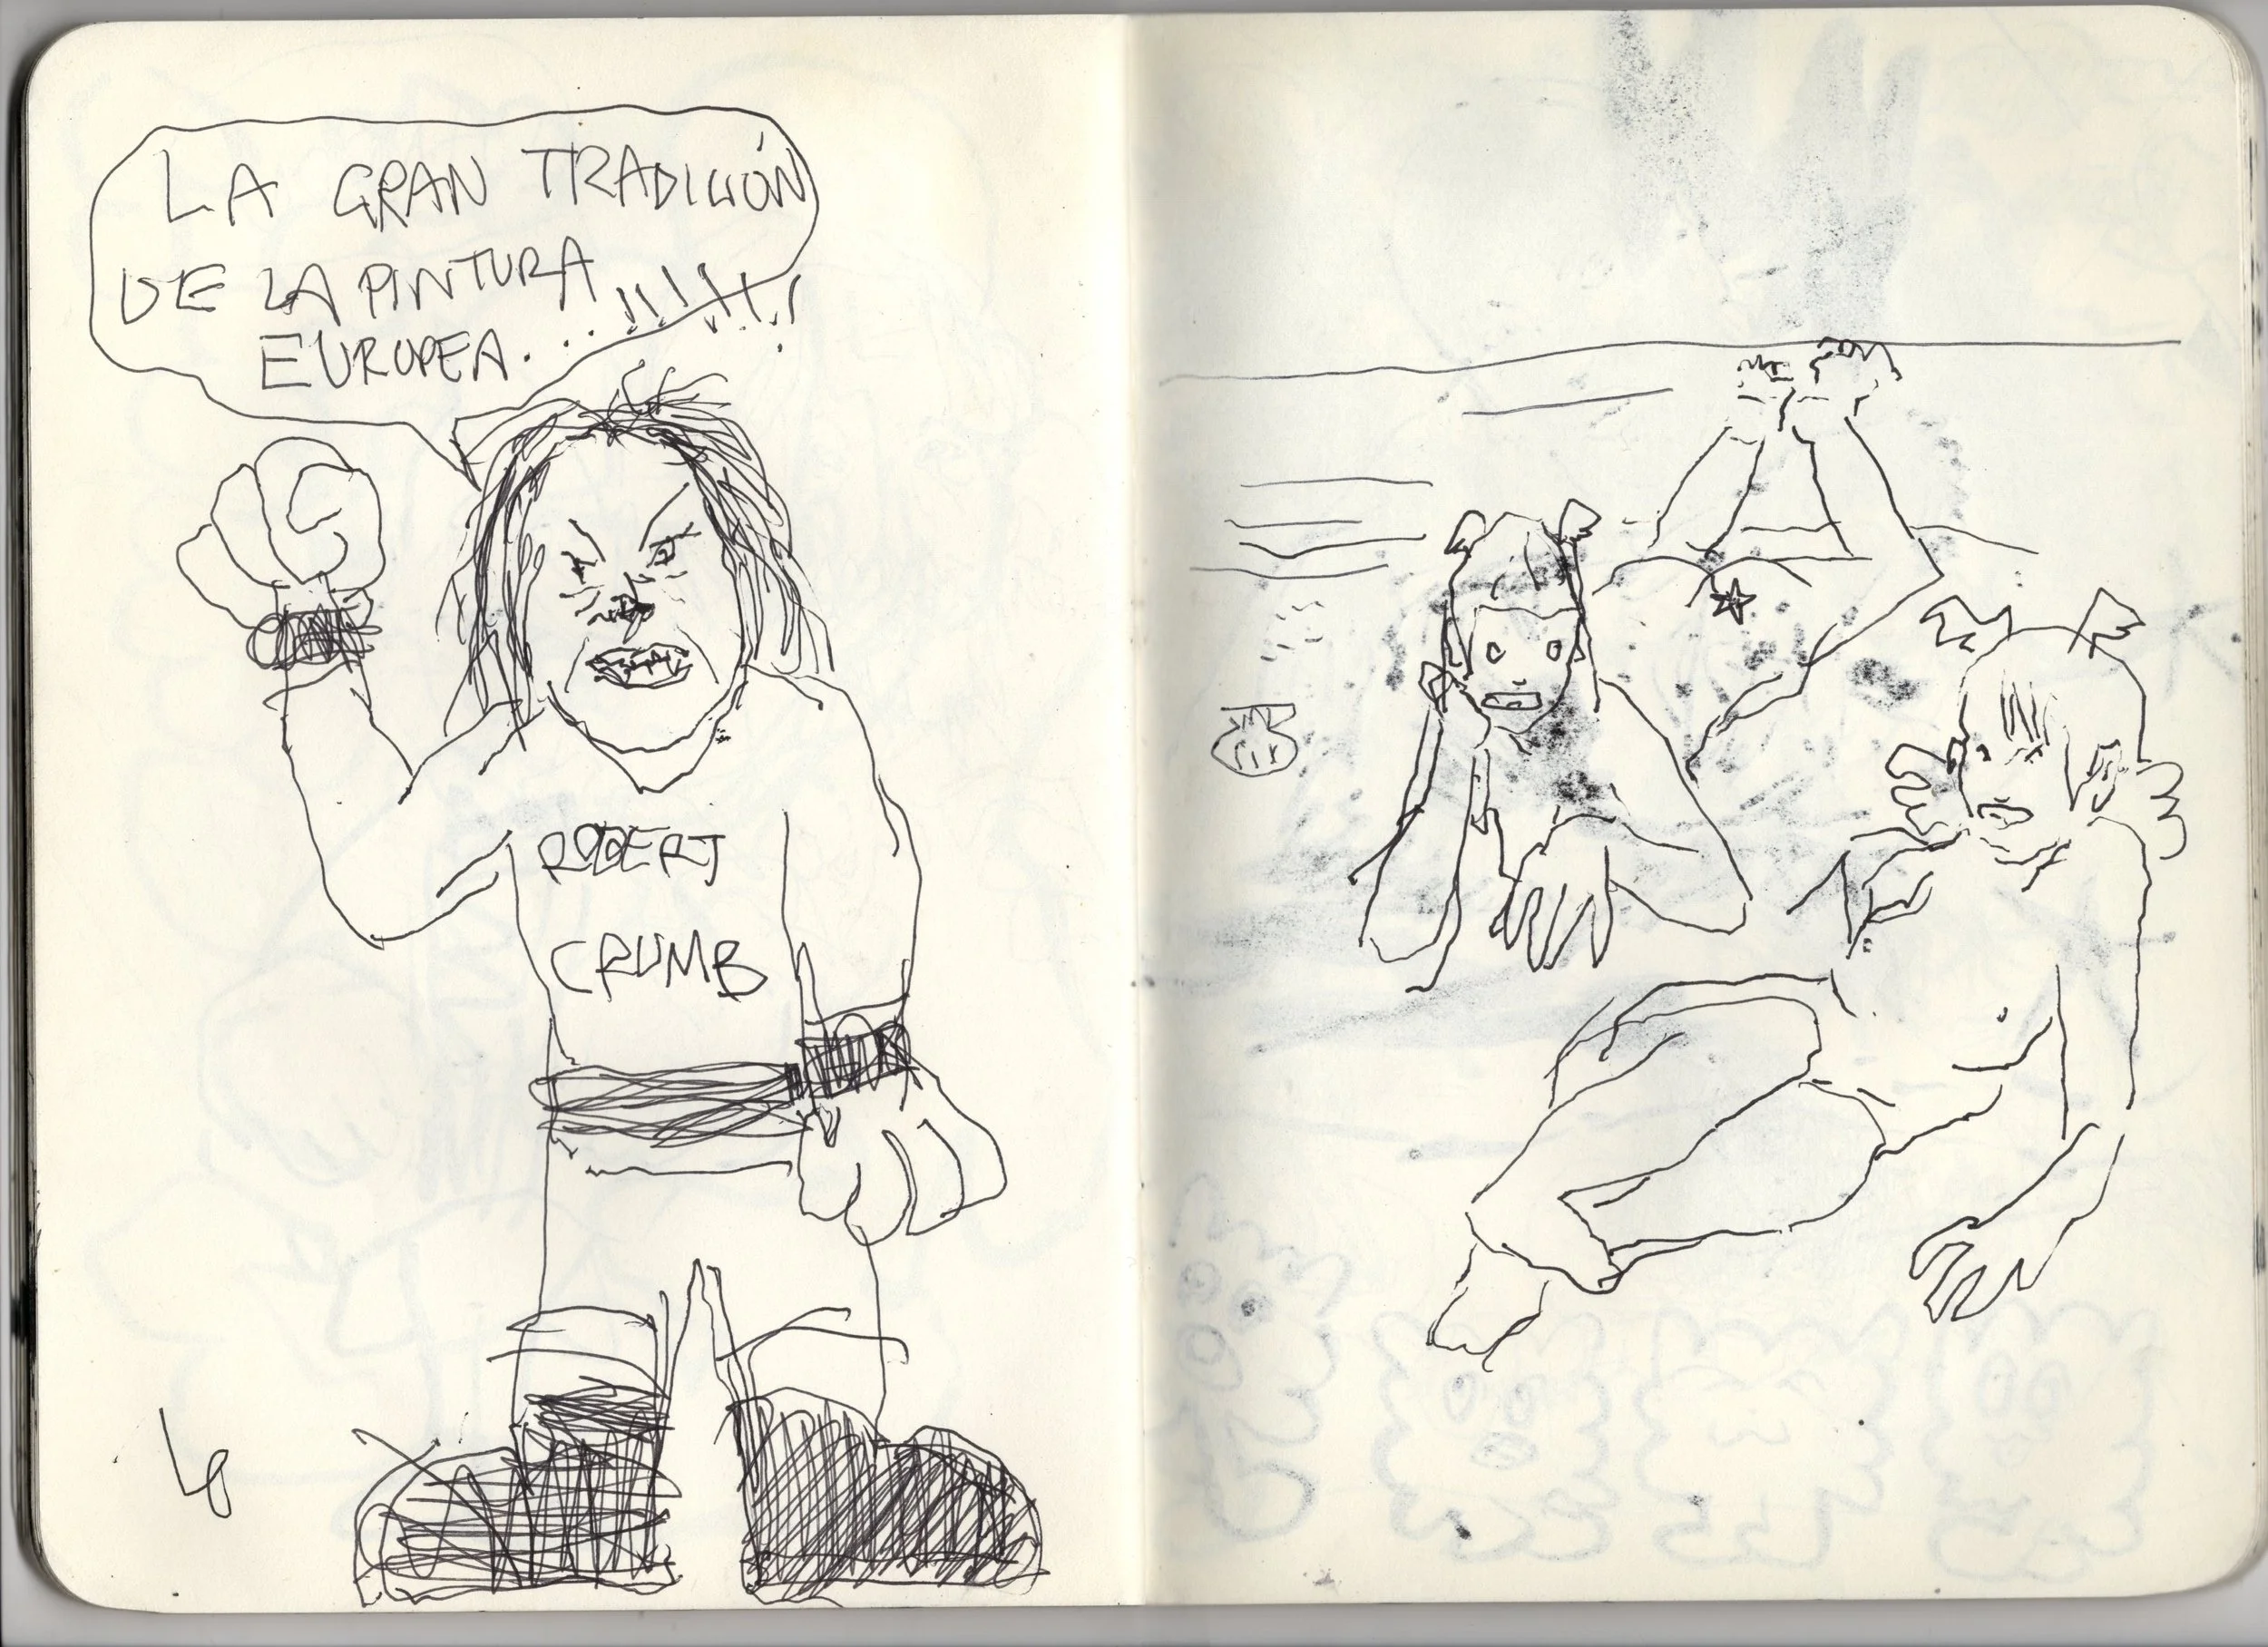 LA GRAN TRADICIÓN
DE LA PINTURA
EUROPEA...!!!!!!
ROBERT
CRUMB